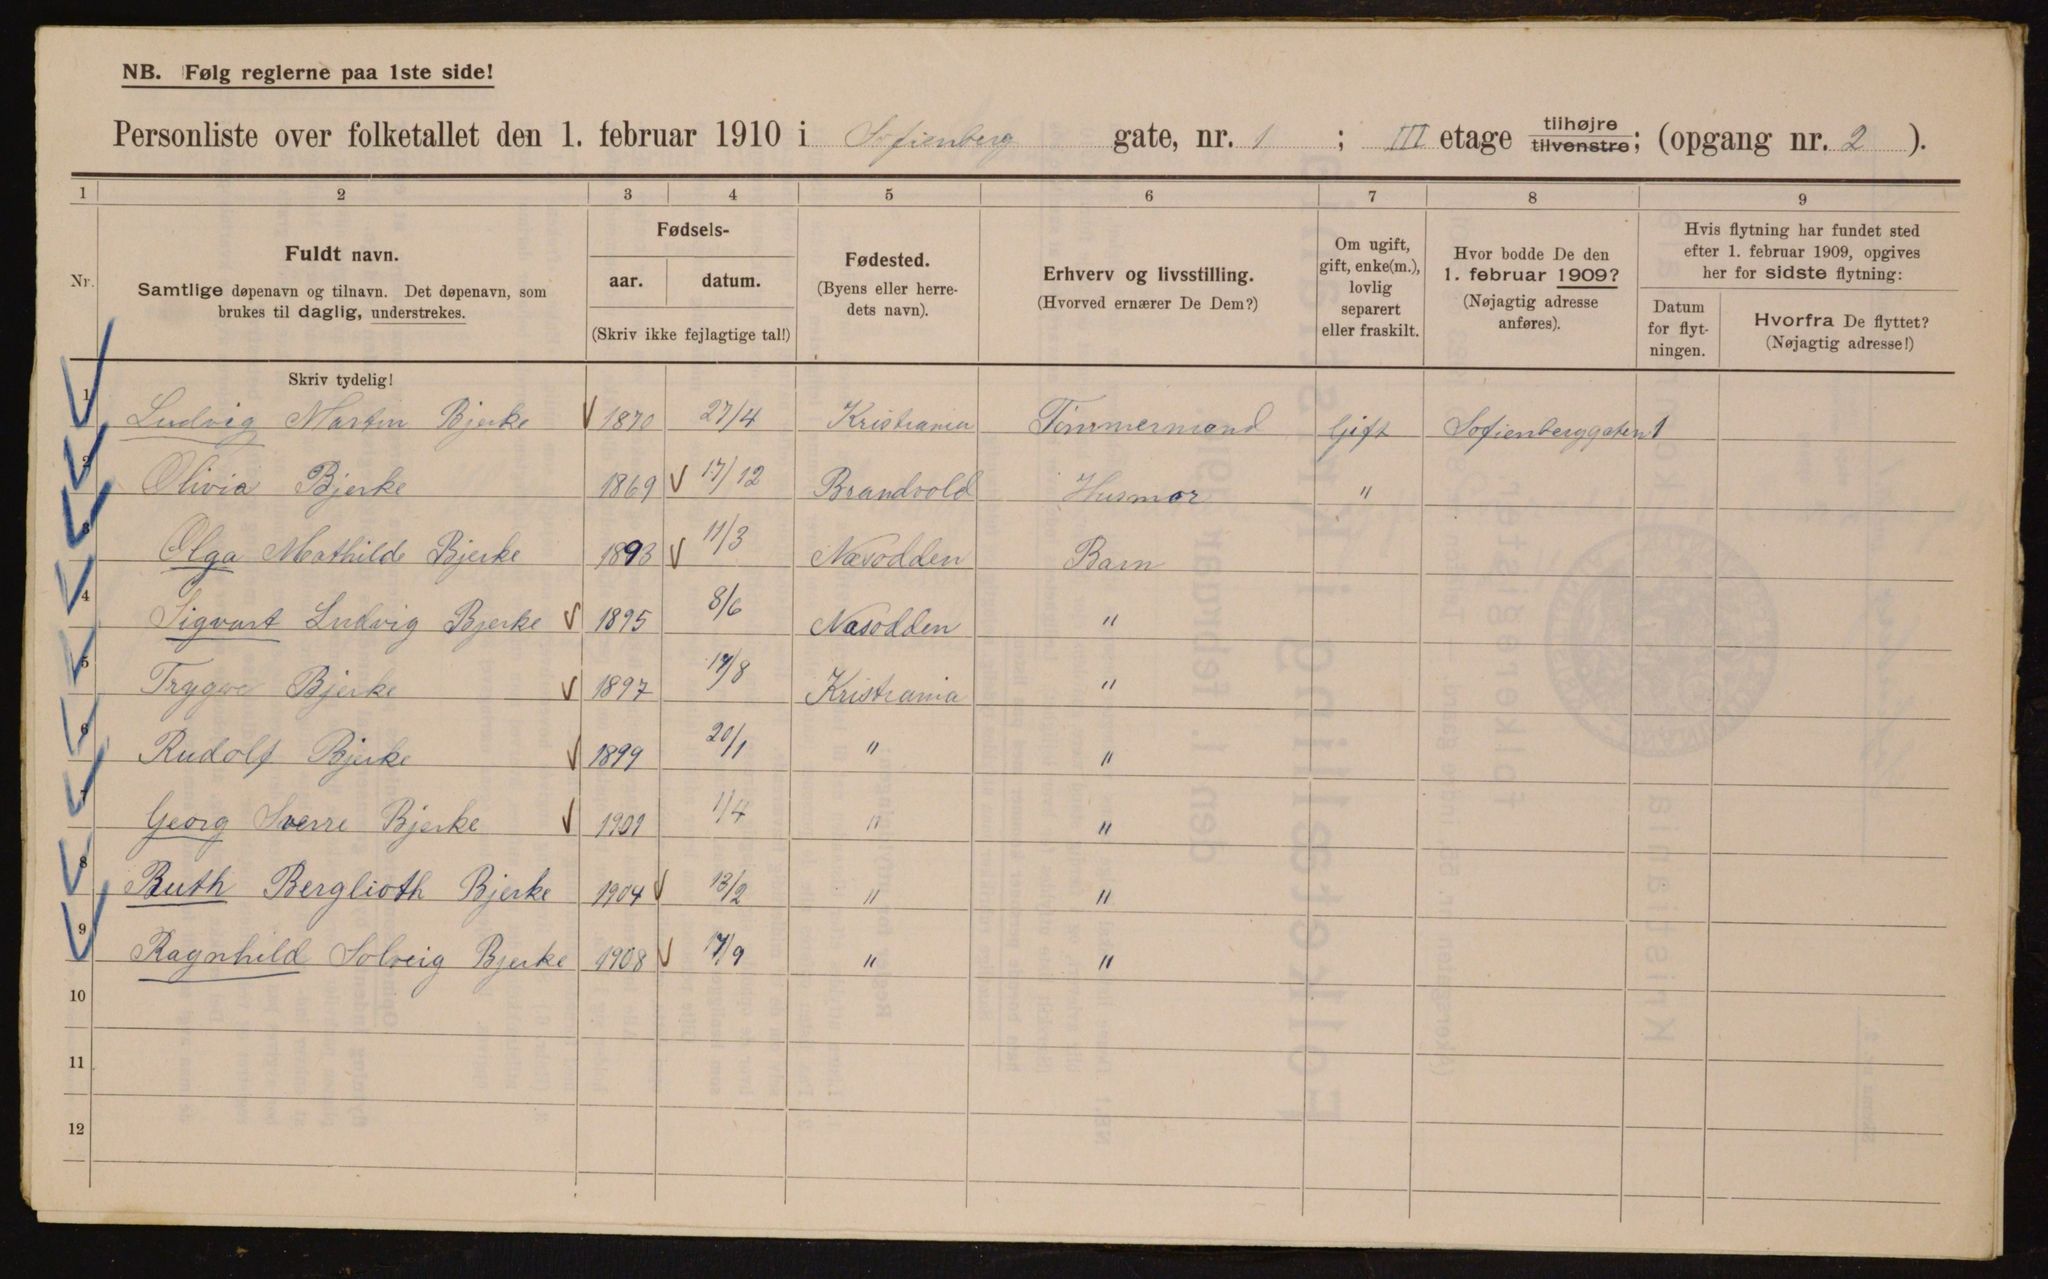 NB. Følg reglerne paa 1ste side!
Personliste over folketallet den 1. februar 1910 i Sofienberg gate, nr. 1 ; III etage tilhøjre tilvenstre; (opgang nr. 2 ).
1 2 3 4 5 6 7 8 9
Nr.
Fuldt navn.
Samtlige døpenavn og tilnavn. Det døpenavn, som
brukes til daglig, understrekes.
Fødsels-
aar. datum.
(Skriv ikke fejlagtige tal!)
Fødested.
(Byens eller herre-
dets navn).
Erhverv og livsstilling.
(Hvorved ernærer De Dem?)
Om ugift,
gift, enke(m.),
lovlig
separert
eller fraskilt.
Hvor bodde De den
1. februar 1909?
(Nøjagtig adresse
anføres).
Hvis flytning har fundet sted
efter 1. februar 1909, opgives
her for sidste flytning:
Datum
for flyt-
ningen.
Hvorfra De flyttet?
(Nøjagtig adresse!)
Skriv tydelig!
1 Ludvig Martin Bjerke 1870 27/4 Kristiania Tømmermand Gift Sofienberggaten 1
2 Olivia Bjerke 1869 17/12 Brandvold Husmor "
3 Olga Mathilde Bjerke 1893 11/3 Næsodden Barn
4 Sigvart Ludvig Bjerke 1895 8/6 Næsodden "
5 Trygve Bjerke 1897 17/8 Kristiania "
6 Rudolf Bjerke 1899 20/1 " "
7 Georg Sverre Bjerke 1901 1/4 " "
8 Ruth Berglioth Bjerke 1904 13/2 " "
9 Ragnhild Solveig Bjerke 1908 17/9 " "
10
11
12